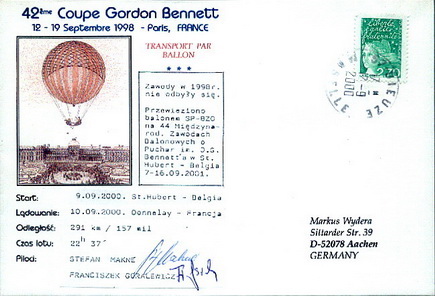 42ème Coupe Gordon Bennett
12 - 19 Septembre 1998 - Paris, FRANCE
TRANSPORT PAR
BALLON
* * *
Zawody w 1998r.
nie odbyły się.
Przewieziono
balonem SP-BZO
na 44 Międzyna-
rod. Zawodach
Balonowych o
Puchar im. J.G.
Bennett'a w St.
Hubert - Belgia
7-16.09.2001.
Start: 9.09.2000. St.Hubert - Belgia
Lądowanie: 10.09.2000. Donnelay - Francja
Odległość: 291 km / 157 mil
Czas lotu: 22ʰ 37'
Pilod: STEFAN MAKNE
FRANCISZEK GORALEWICZ
Liberté
égalité
fraternité
2,70
12-9
2000
IEUZE
MOSELLE
Markus Wydera
Sittarder Str. 39
D-52078 Aachen
GERMANY